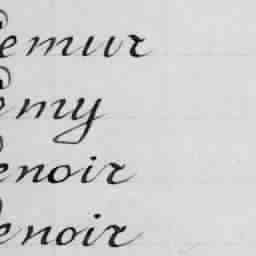 emur
emy
enoir
enoir